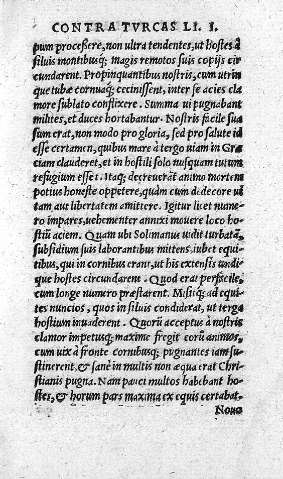 CONTRA TVRCAS LI. I.
pum proceßere, non ultra tendentes, ut hostes à
siluis montibusq́; magis remotos suis copijs cir
cundarent. Propinquantibus nostris, cum utrin
que tubæ cornuaq́; cecinissent, inter se acies cla
more sublato conflixere. Summa ui pugnabant
milites, et duces hortabantur. Nostris facile sua
sum erat, non modo pro gloria, sed pro salute id
esse certamen, quibus mare à tergo uiam in Græ
ciam clauderet, et in hostili solo nusquam tutum
refugium esset. Itaq; decreuerãt animo mortem
potius honeste oppetere, quàm cum dedecore ui
tam aut libertatem amittere. Igitur licet nume-
ro impares, uehementer annixi mouere loco ho-
stiũ aciem. Quam ubi Solimanus uidit turbatã,
subsidium suis laborantibus mittens, iubet equi
tibus, qui in cornibus erant, ut his extensis undi-
que hostes circundarent. Quod erat perfacile,
cum longe numero præstarent. Misitq́; ad equi
tes nuncios, quos in siluis condiderat, ut terga
hostium inuaderent. Quorũ acceptus à nostris
clamor impetusq́; maxime fregit eorũ animos,
cum uix à fronte cornibusq́; pugnantes iam su-
stinerent, & sanè in multis non æqua erat Chri-
stianis pugna. Nam pauci multos habebant ho-
stes, & horum pars maxima ex equis certabat.
Noua